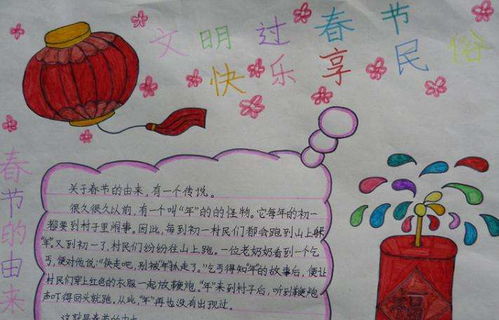 文明过春节
快乐享民俗
春节的由来
关于春节的由来，有一个传说。
很久很久以前，有一个叫“年”的的怪物。它每年的初一
都要到村子里闹事。因此，每到初一村民们都会跑到山上躲
“年”。又到初一了，村民们纷纷在山上跑。一位老奶奶看到一个乞
丐，便对他说：“快走吧，别被“年”抓走了。”乞丐得知“年”的故事后，便让
村民们穿上红色的衣服一起放鞭炮。“年”来到村子后，听到鞭炮
声吓得回头就跑。从此，“年”再也没有出现过。
这就是春节的由来